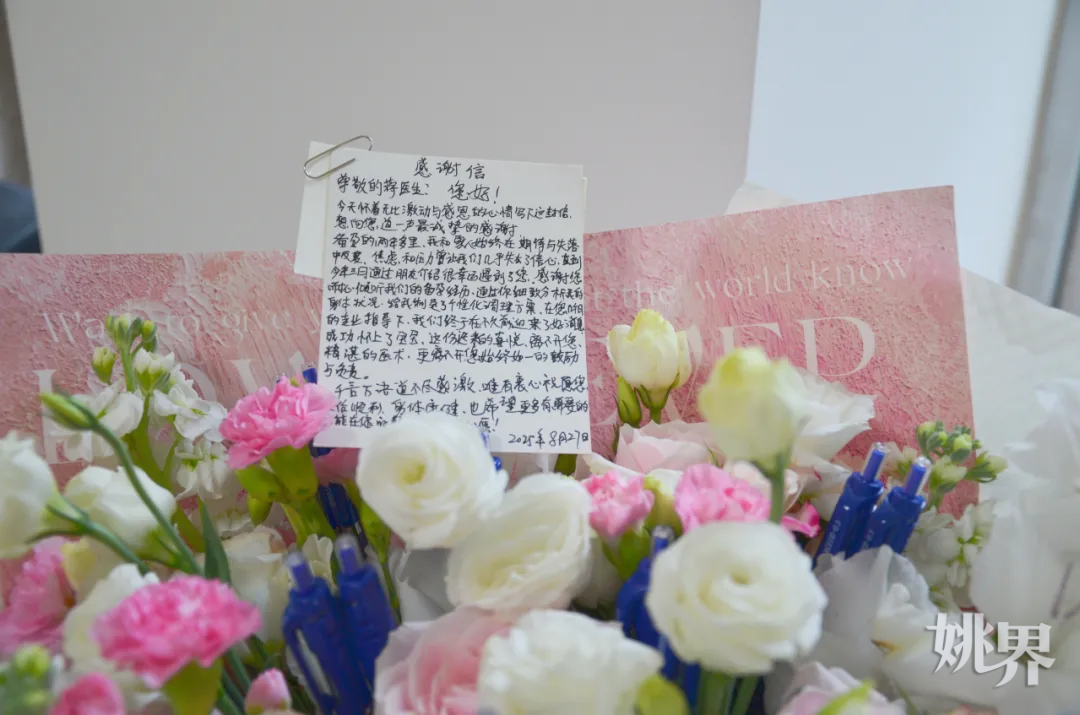 感谢信
尊敬的蒋医生：您好！
今天怀着无比激动与感恩的心情写下这封信，
想向您道一声最诚挚的感谢
备孕的两年多里，我和爱人始终在期待与失落
中反复，焦虑和压力曾让我们几乎失去了信心，直到
今年三月通过朋友介绍很幸运遇到了您，感谢您
耐心倾听我们的备孕经历，通过你细致分析我的
身体状况，给我制定了个性化调理方案，在您
的专业指导下，我们终于在不久前迎来了好消息
成功怀上了宝宝，这份迟来的喜悦，离不开您
精湛的医术，更离不开您始终如一的鼓励
与负责。
千言万语道不尽感激，唯有衷心祝愿您
工作顺利，身体康健，也希望更多有需要的
能在您的
2025年8月27日
Want to giv
the world know
姚界